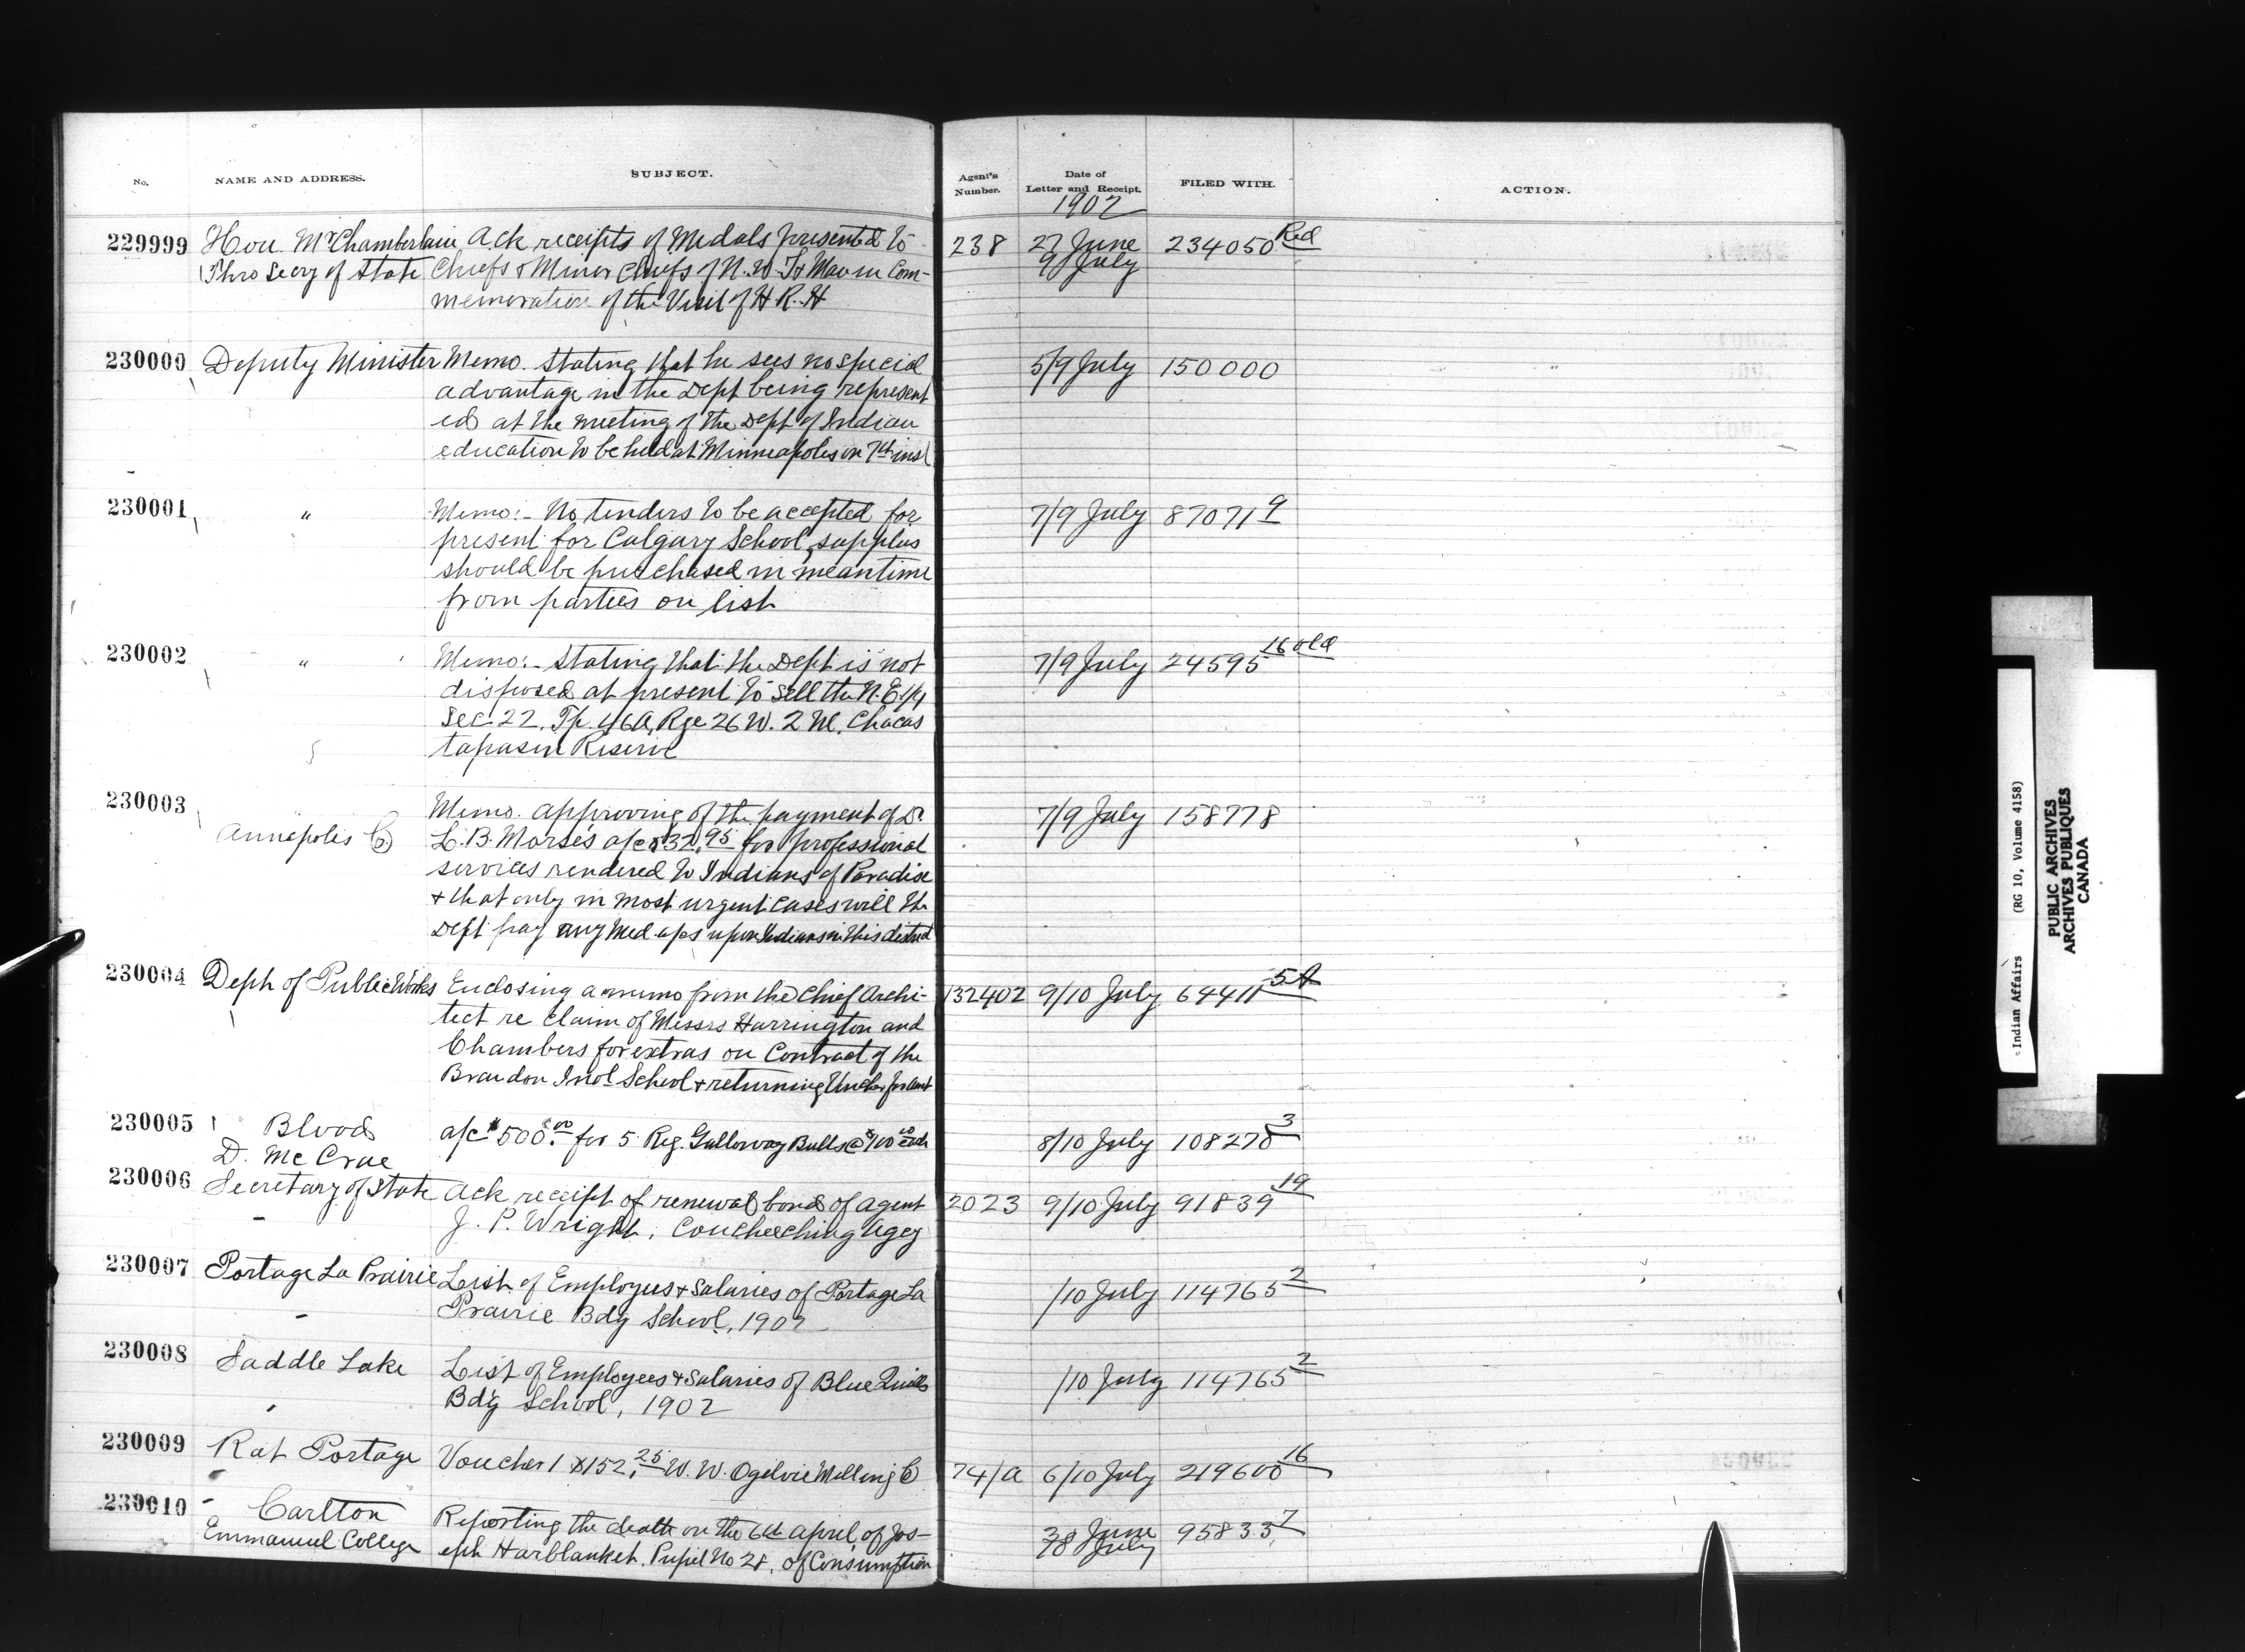 No. NAME AND ADDRESS. SUBJECT. Agent's Number. Date of Letter and Receipt. FILED WITH. ACTION.
1902
229999 Hon. Mr Chamberlain Ack receipts of Medals presented to 238 27 June 234050 Red
Thro Secy of State Chiefs & Minor Chiefs of N.W.T & Man in Com- 9 July
memoration of the Visit of H R. H
230000 Deputy Minister Memo. Stating that he sees no special 5/9 July 150000
advantage in the Dept being represent
ed at the meeting of the Dept of Indian
education to be held at Minneapolis on 7th inst
230001 " Memo:- No tenders to be accepted for 7/9 July 87071 9
present for Calgary School, supplies
should be purchased in meantime
from parties on list
230002 " Memo:- Stating that the Dept is not 7/9 July 24595 16 old
disposed at present to sell the N.E. 1/4
Sec 22, Tp. 46A, Rge 26 W. 2 M. Chacas
tapasin Reserve
230003 Memo. approving of the payment of Dr 7/9 July 158778
Annapolis Co. L.B. Morse's a/c $32.95 for professional
services rendered to Indians of Paradise
& that only in most urgent cases will the
Dept pay any Med a/cs upon Indians in this district
230004 Dept of Public Works Enclosing a memo from the Chief Archi- 132402 9/10 July 64411 5A
tect re claim of Messrs Harrington and
Chambers for extras on Contract of the
Brandon Indl School & returning Voucher for amt
230005 Blood a/c $500.00 for 5 Reg. Galloway Bulls @ $100.00 each 8/10 July 108278 3
D. McCrae
230006 Secretary of State Ack receipt of renewal bond of agent 2023 9/10 July 91839 19
J. P. Wright, Coucheeching Agcy
230007 Portage La Prairie List of Employees & Salaries of Portage La /10 July 114765 2
Prairie Bdg School, 1902
230008 Saddle Lake List of Employees & Salaries of Blue Quills /10 July 114765 2
Bdg School, 1902
230009 Rat Portage Voucher 1 $152.25 W. W. Ogilvie Milling Co 74/a 6/10 July 219600 16
230010 Carlton Reporting the death on the 6th April, of Jos- 30 June 95833 7
Emmanuel College eph Harblanket, Pupil No 28, of Consumption July
Indian Affairs (RG 10, Volume 4158)
PUBLIC ARCHIVES
ARCHIVES PUBLIQUES
CANADA